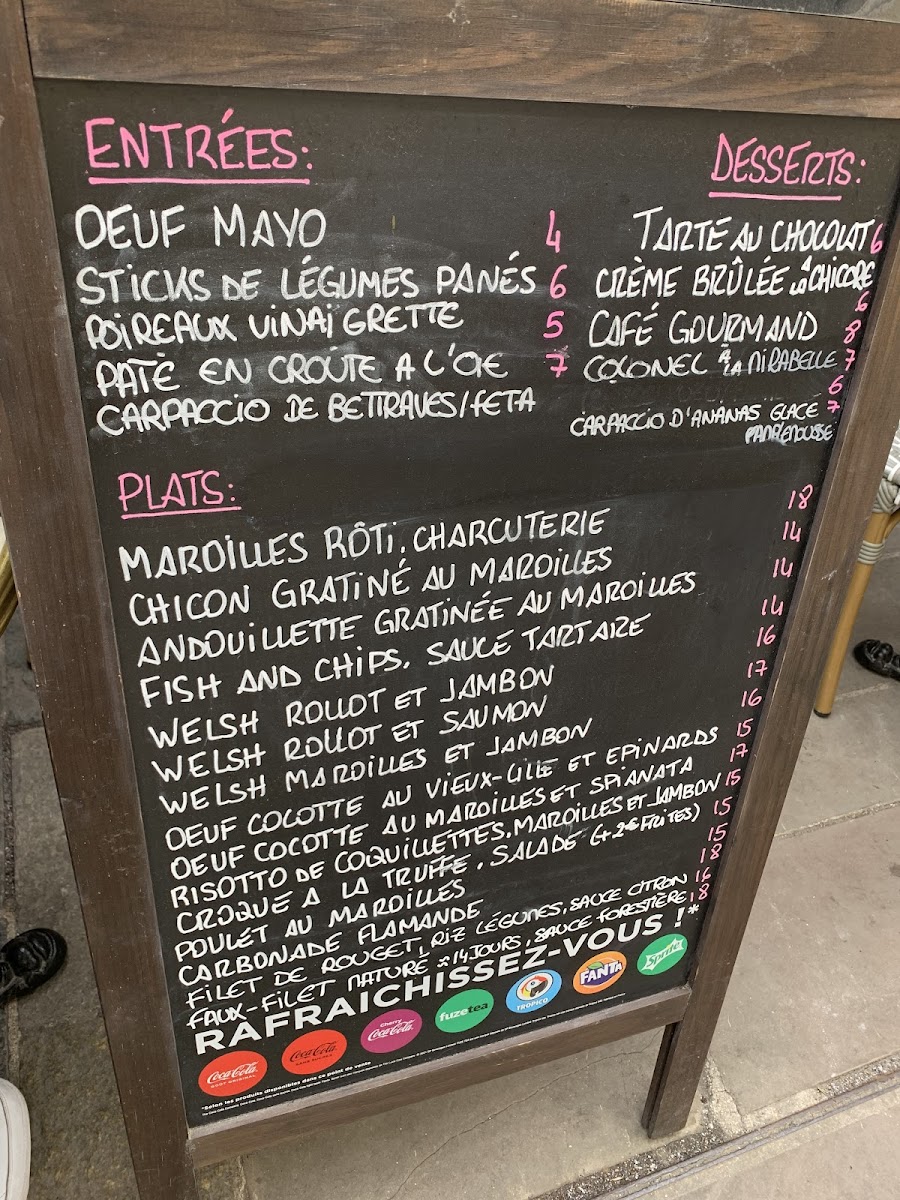 ENTRÉES:
OEUF MAYO 4
STICKS DE LÉGUMES PANÉS 6
POIREAUX VINAIGRETTE 5
PATÈ EN CROUTE A L'OIE 7
CARPACCIO DE BETTRAVES/FETA
DESSERTS:
TARTE AU CHOCOLAT 6
CRÈME BRÛLÉE A LA CHICORE
6
CAFÉ GOURMAND 8
COLONEL A LA MIRABELLE 7
6
CARPACCIO D'ANANAS GLACE 7
PAMPLEMOUSSE
PLATS:
MAROILLES RÔTI, CHARCUTERIE 18
CHICON GRATINÉ AU MAROILLES 14
ANDOUILLETTE GRATINÉE AU MAROILLES 14
FISH AND CHIPS, SAUCE TARTARE 14
WELSH ROLLOT ET JAMBON 16
WELSH ROLLOT ET SAUMON 17
WELSH MAROILLES ET JAMBON 16
OEUF COCOTTE AU VIEUX-LILLE ET EPINARDS 15
OEUF COCOTTE AU MAROILLES ET SPIANATA 17
RISOTTO DE COQUILLETTES, MAROILLES ET JAMBON 15
CROQUE A LA TRUFFE, SALADE (+2€ FRITES) 15
POULET AU MAROILLES 15
CARBONADE FLAMANDE 18
FILET DE ROUGET, RIZ LÉGUMES, SAUCE CITRON 16
FAUX-FILET MATURÉ 14 JOURS, SAUCE FORESTIÈRE 18
RAFRAICHISSEZ-VOUS !*
Coca-Cola GOÛT ORIGINAL
Coca-Cola SANS SUCRES
Cherry Coca-Cola
fuzetea
TROPICO
FANTA
Sprite
*Selon les produits disponibles dans ce point de vente